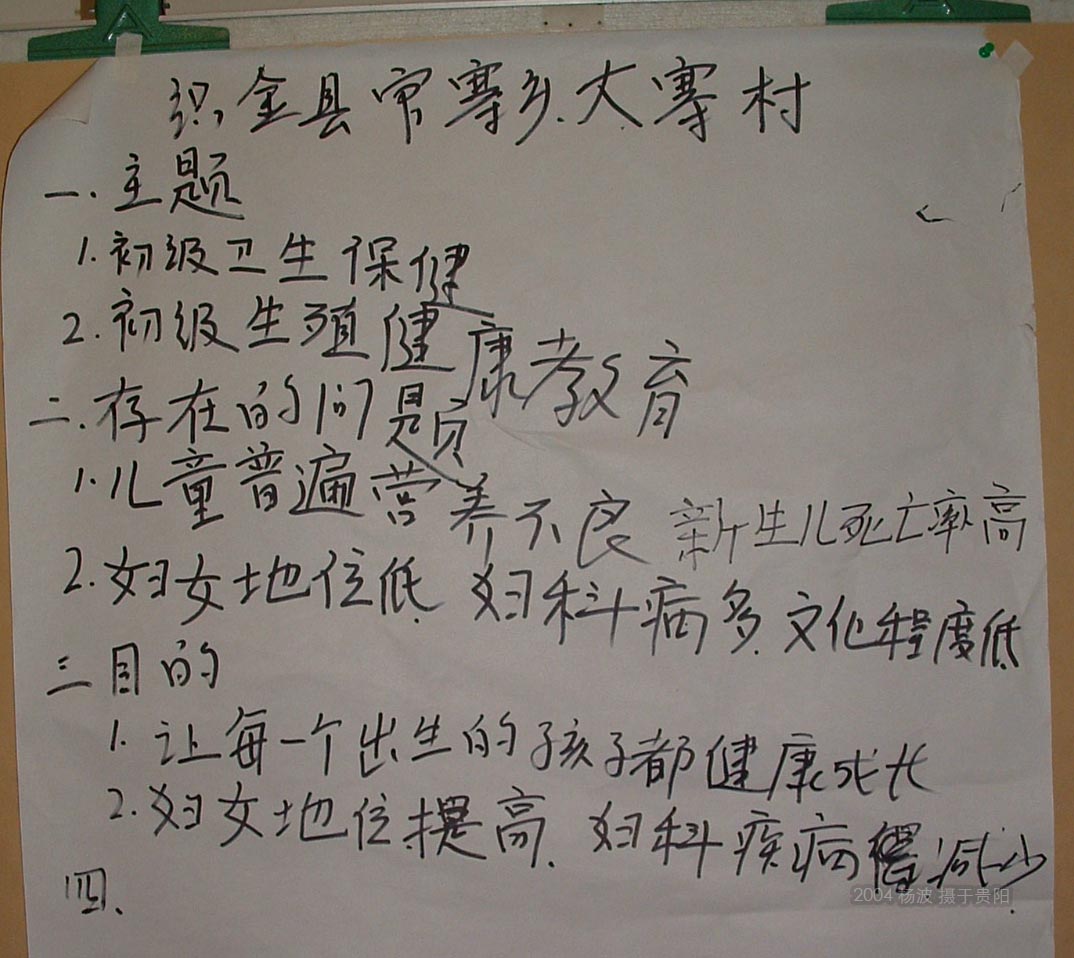 织金县官寨乡.大寨村
一.主题
1.初级卫生保健
2.初级生殖健康教育
二.存在的问题
1.儿童普遍营养不良 新生儿死亡率高
2.妇女地位低.妇科病多.文化程度低
三目的
1.让每一个出生的孩子都健康成长
2.妇女地位提高.妇科疾病减少.
四.
2004 杨波 摄于贵阳